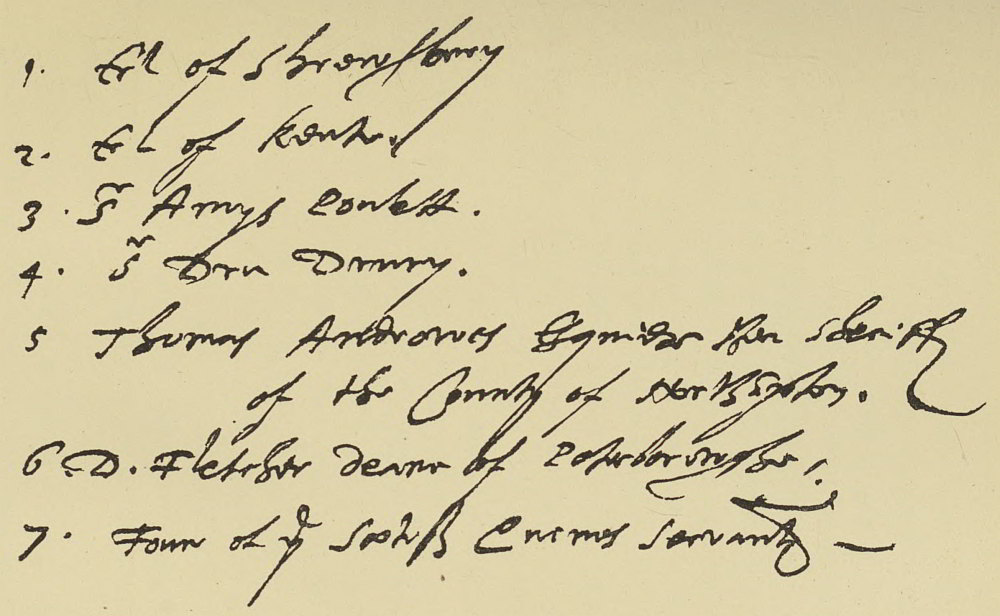 1. Erl of Shrewsbury
2. Erl of Kente.
3. Sr Amys Poulett.
4. Sr Dru Drury.
5 Thomas Androwes Esquier then Sheriff
of the County of Northampton.
6 D. Fletcher deane of Peterboroughe.
7. Four of ye Scotish Queenes Servants